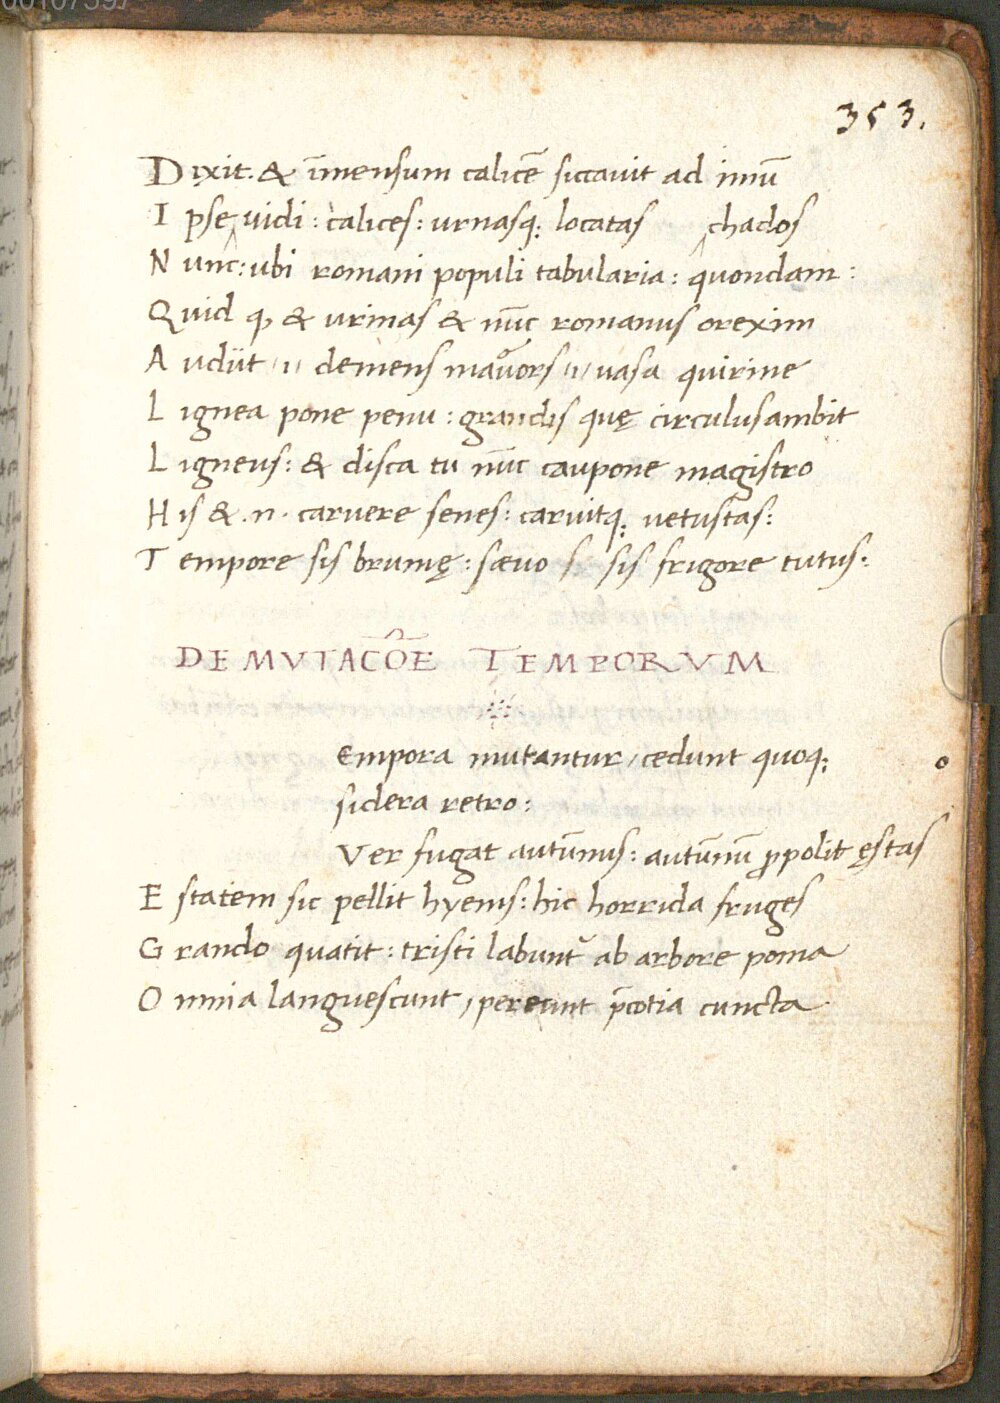 00107397
353.
Dixit. & īmensum calicē siccauit ad imū
Ipse vidi: calices: urnasq; locatas chados
Nunc: ubi romani populi tabularia: quondam:
Quid q, & urinas & nūc romanus orexim
Audiit „ demens mauors „ uasa quirine
Lignea pone penu: grandis quę circulus ambit
Ligneus: & disca tu nūc caupone magistro
His & .n. caruere senes: caruitq; uetustas:
Tempore sis brumę: sæuo s sis frigore tutus:
DE MVTACÕE TEMPORVM
Empora mutantur, cedunt quoq;
sidera retro:
Ver fugat autūnus: autūnū ꝓpolit ęstas
Estatem sic pellit hyems: hic horrida fruges
Grando quatit: tristi labunt᷑ ab arbore poma
Omnia languescunt, pereunt p̄cotia cuncta